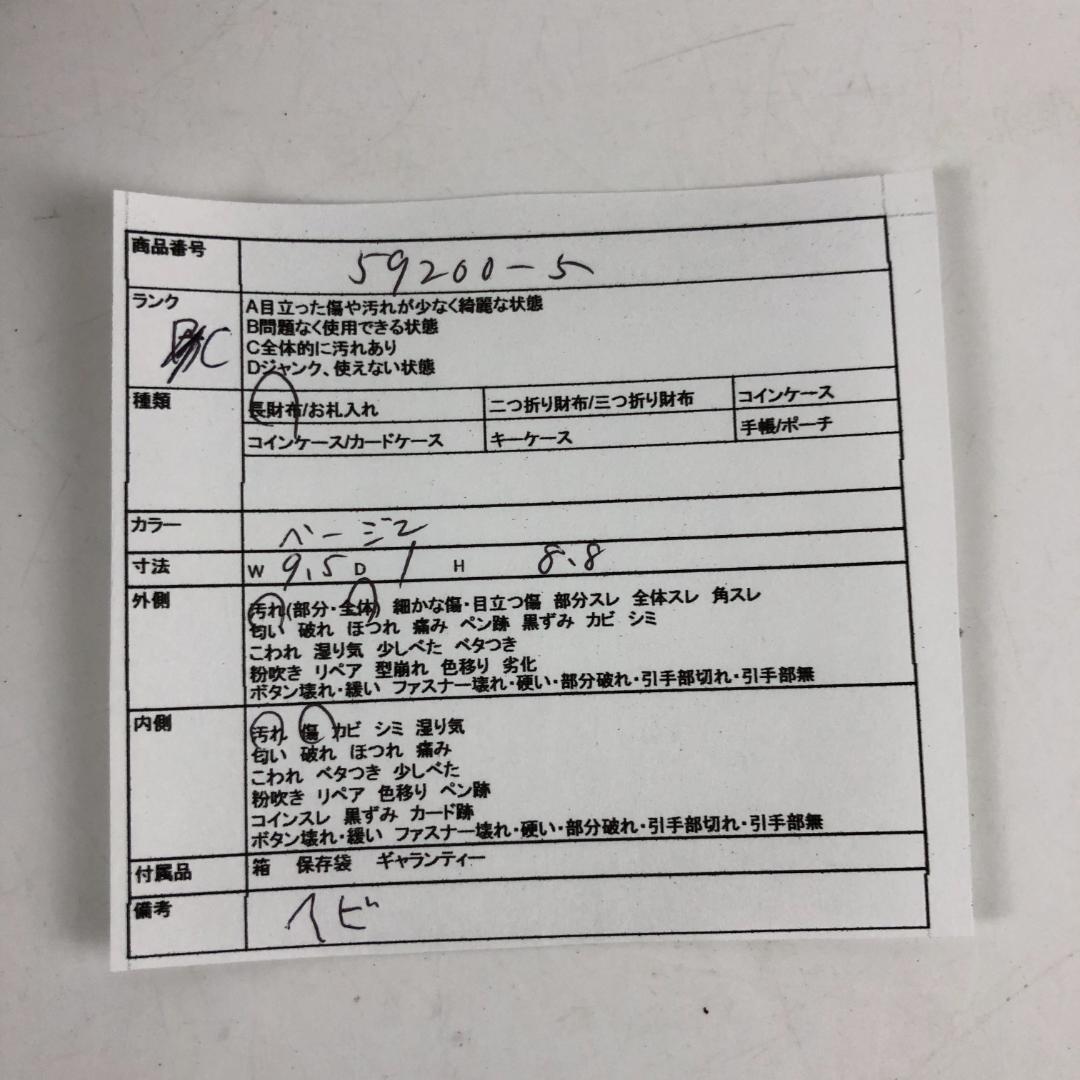 商品番号 59200-5
ランク C
A目立った傷や汚れが少なく綺麗な状態
B問題なく使用できる状態
C全体的に汚れあり
Dジャンク、使えない状態
種類 長財布/お札入れ 二つ折り財布/三つ折り財布 コインケース
コインケース/カードケース キーケース 手帳/ポーチ
カラー ベージュ
寸法 W 9.5 D 1 H 8.8
外側 汚れ(部分・全体) 細かな傷・目立つ傷 部分スレ 全体スレ 角スレ
匂い 破れ ほつれ 痛み ペン跡 黒ずみ カビ シミ
こわれ 湿り気 少しべた ベタつき
粉吹き リペア 型崩れ 色移り 劣化
ボタン壊れ・緩い ファスナー壊れ・硬い・部分破れ・引手部切れ・引手部無
内側 汚れ 傷 カビ シミ 湿り気
匂い 破れ ほつれ 痛み
こわれ ベタつき 少しべた
粉吹き リペア 色移り ペン跡
コインスレ 黒ずみ カード跡
ボタン壊れ・緩い ファスナー壊れ・硬い・部分破れ・引手部切れ・引手部無
付属品 箱 保存袋 ギャランティー
備考 ヘビ